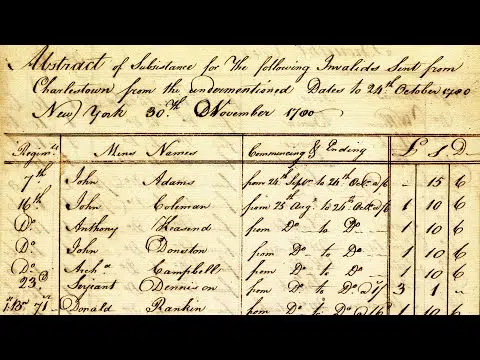 Abstract of Subsistance for The following Invalids Sent from
Charlestown from the undermentioned Dates to 24th October 1780
New York 30th November 1780
Regimts Mens Names Commencing & Ending £ S D
7th John Adams from 24th Septr to 24th Octr a/6 - 15 6
16th John Coleman from 25th Augt to 24th Octr a/6 1 10 6
Do Anthony Keasend from Do to Do 1 10 6
Do John Doniston from Do to Do 1 10 6
Do Archd Campbell from Do to Do 1 10 6
23d Serjeant Dennison from Do to Do a 1/ 3 1 "
1st Bn 71st Donald Rankin from Do to Do a/6 1 10 6